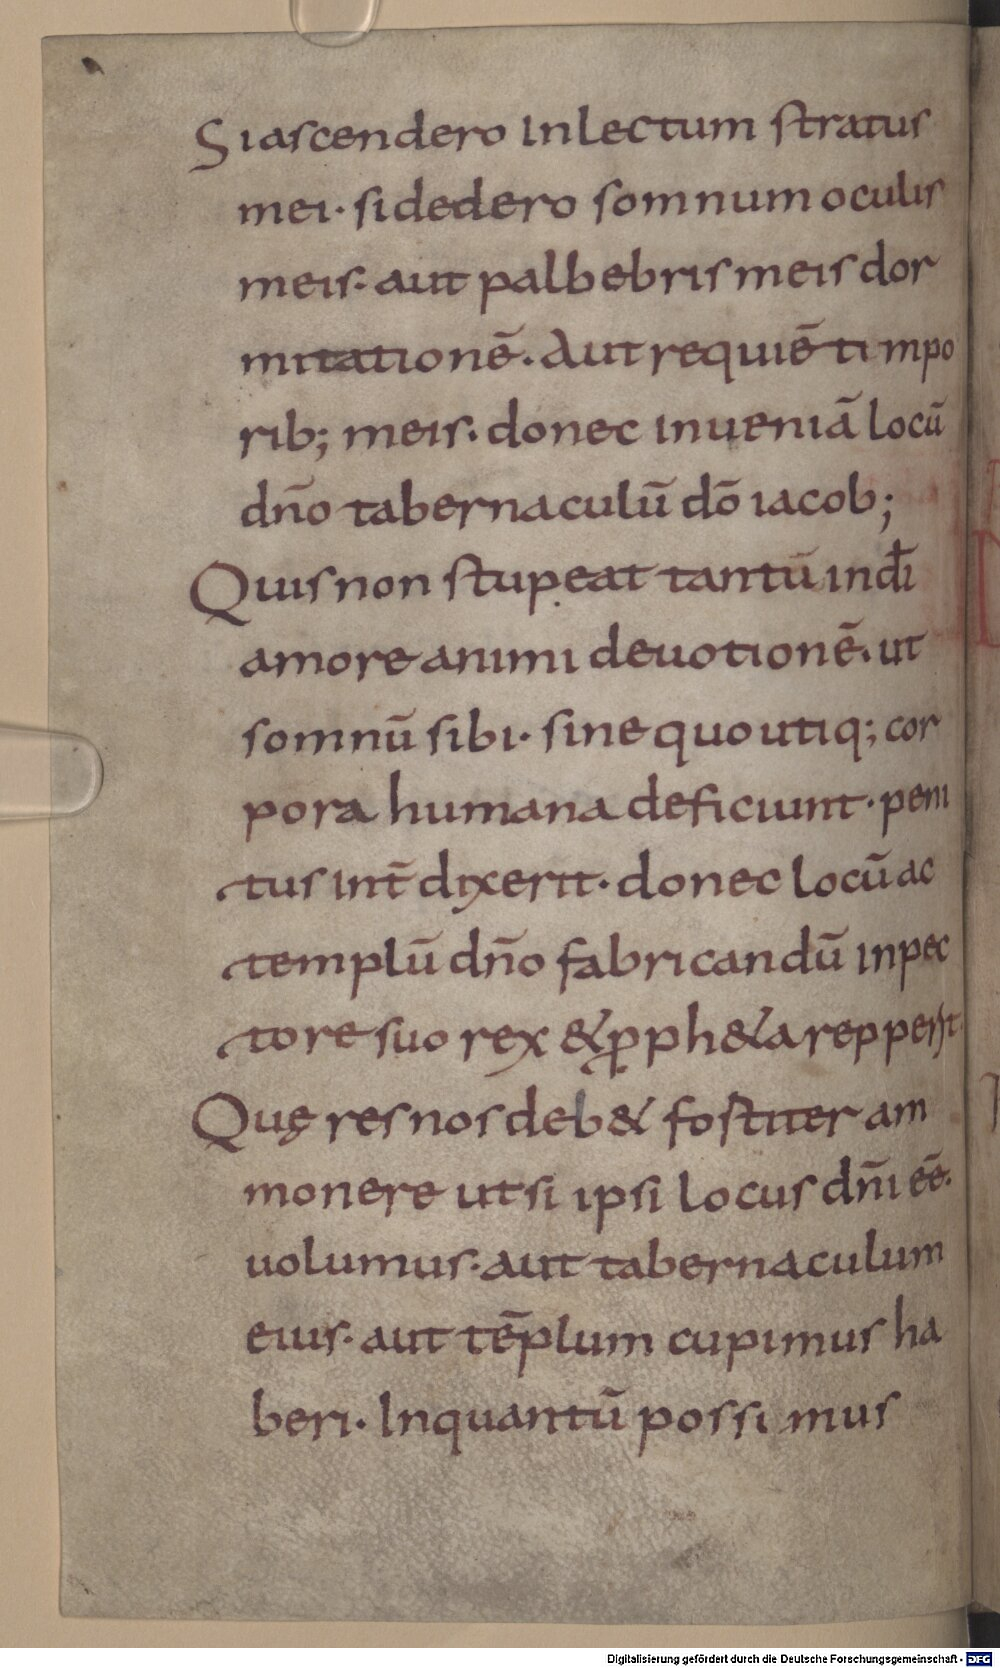 Si ascendero in lectum stratus
mei· si dedero somnum oculis
meis· aut palbebris meis dor
mitationē· Aut requiē timpo
rib; meis· donec inueniā locū
dn̄o tabernaculū dō iacob;
Quis non stupeat tantū in dī
amore animi deuotionē· ut
somnū sibi· sine quo utiq; cor
pora humana deficiunt· peni
tus int̄dixerit· donec locū ac
templū dn̄o fabricandū in pec
tore suo rex & ꝓph&a repperit·
Quę res nos deb& fostiter am
monere ut si ipsi locus dn̄i eē·
uolumus· aut tabernaculum
eius· aut tēplum cupimus ha
beri· Inquantū possimus
Digitalisierung gefördert durch die Deutsche Forschungsgemeinschaft - DFG